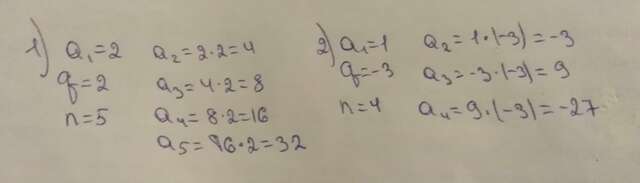 1) a₁=2 a₂=2·2=4
q=2 a₃=4·2=8
n=5 a₄=8·2=16
a₅=16·2=32
2) a₁=1 a₂=1·(-3)=-3
q=-3 a₃=-3·(-3)=9
n=4 a₄=9·(-3)=-27